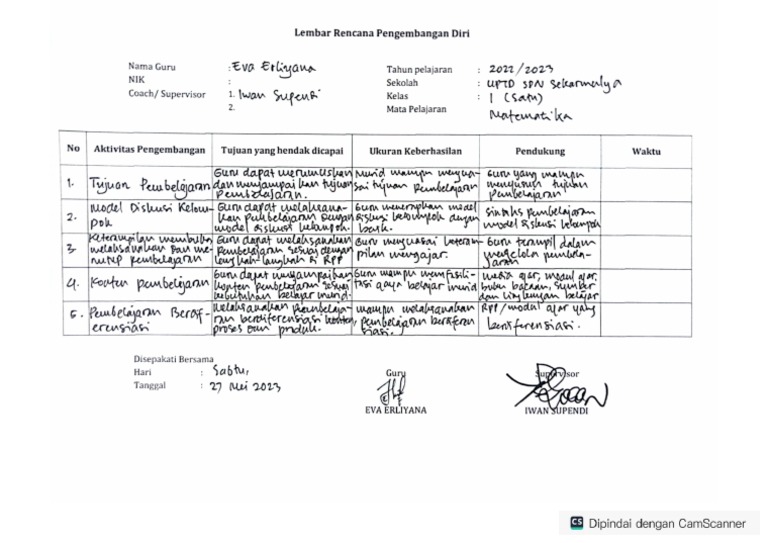 Lembar Rencana Pengembangan Diri
Nama Guru : Eva Erliyana
NIK :
Coach/ Supervisor : 1. Iwan Supendi
2.
Tahun pelajaran : 2022/2023
Sekolah : UPTD SDN Sekarmulya
Kelas : 1 (Satu)
Mata Pelajaran Matematika
No Aktivitas Pengembangan Tujuan yang hendak dicapai Ukuran Keberhasilan Pendukung Waktu
1. Tujuan Pembelajaran
Guru dapat merumuskan
dan menyampaikan tujuan
pembelajaran.
Murid mampu menyesuai
tujuan pembelajaran
Guru yang mampu
menyusun tujuan
pembelajaran
2. Model Diskusi Kelom-
pok
Guru dapat melaksana-
kan pembelajaran dengan
model diskusi kelompok.
Guru menerapkan model
diskusi kelompok dengan
baik.
pembelajaran
model diskusi kelompok
3. Keterampilan membuka
melaksanakan dan me-
nutup pembelajaran
Guru dapat melaksanakan
pembelajaran sesuai dengan
langkah-langkah di RPP
Guru menguasai keteram-
pilan mengajar.
Guru terampil dalam
mengelola pembela-
jaran
4. Konten pembelajaran
Guru dapat menyampaikan
konten pembelajaran sesuai
kebutuhan belajar murid.
Guru mampu memfasili-
tasi gaya belajar murid
media ajar, modul ajar,
buku bacaan, sumber
dan lingkungan belajar
5. Pembelajaran Berdif-
erensiasi
Melaksanakan pembelaja-
ran berdiferensiasi konten,
proses dan produk.
mampu melaksanakan
pembelajaran berdiferen
siasi.
RPP/modul ajar yang
berdiferensiasi.
Disepakati Bersama
Hari : Sabtu,
Tanggal : 27 Mei 2023
Guru
EVA ERLIYANA
Supervisor
IWAN SUPENDI
CS Dipindai dengan CamScanner